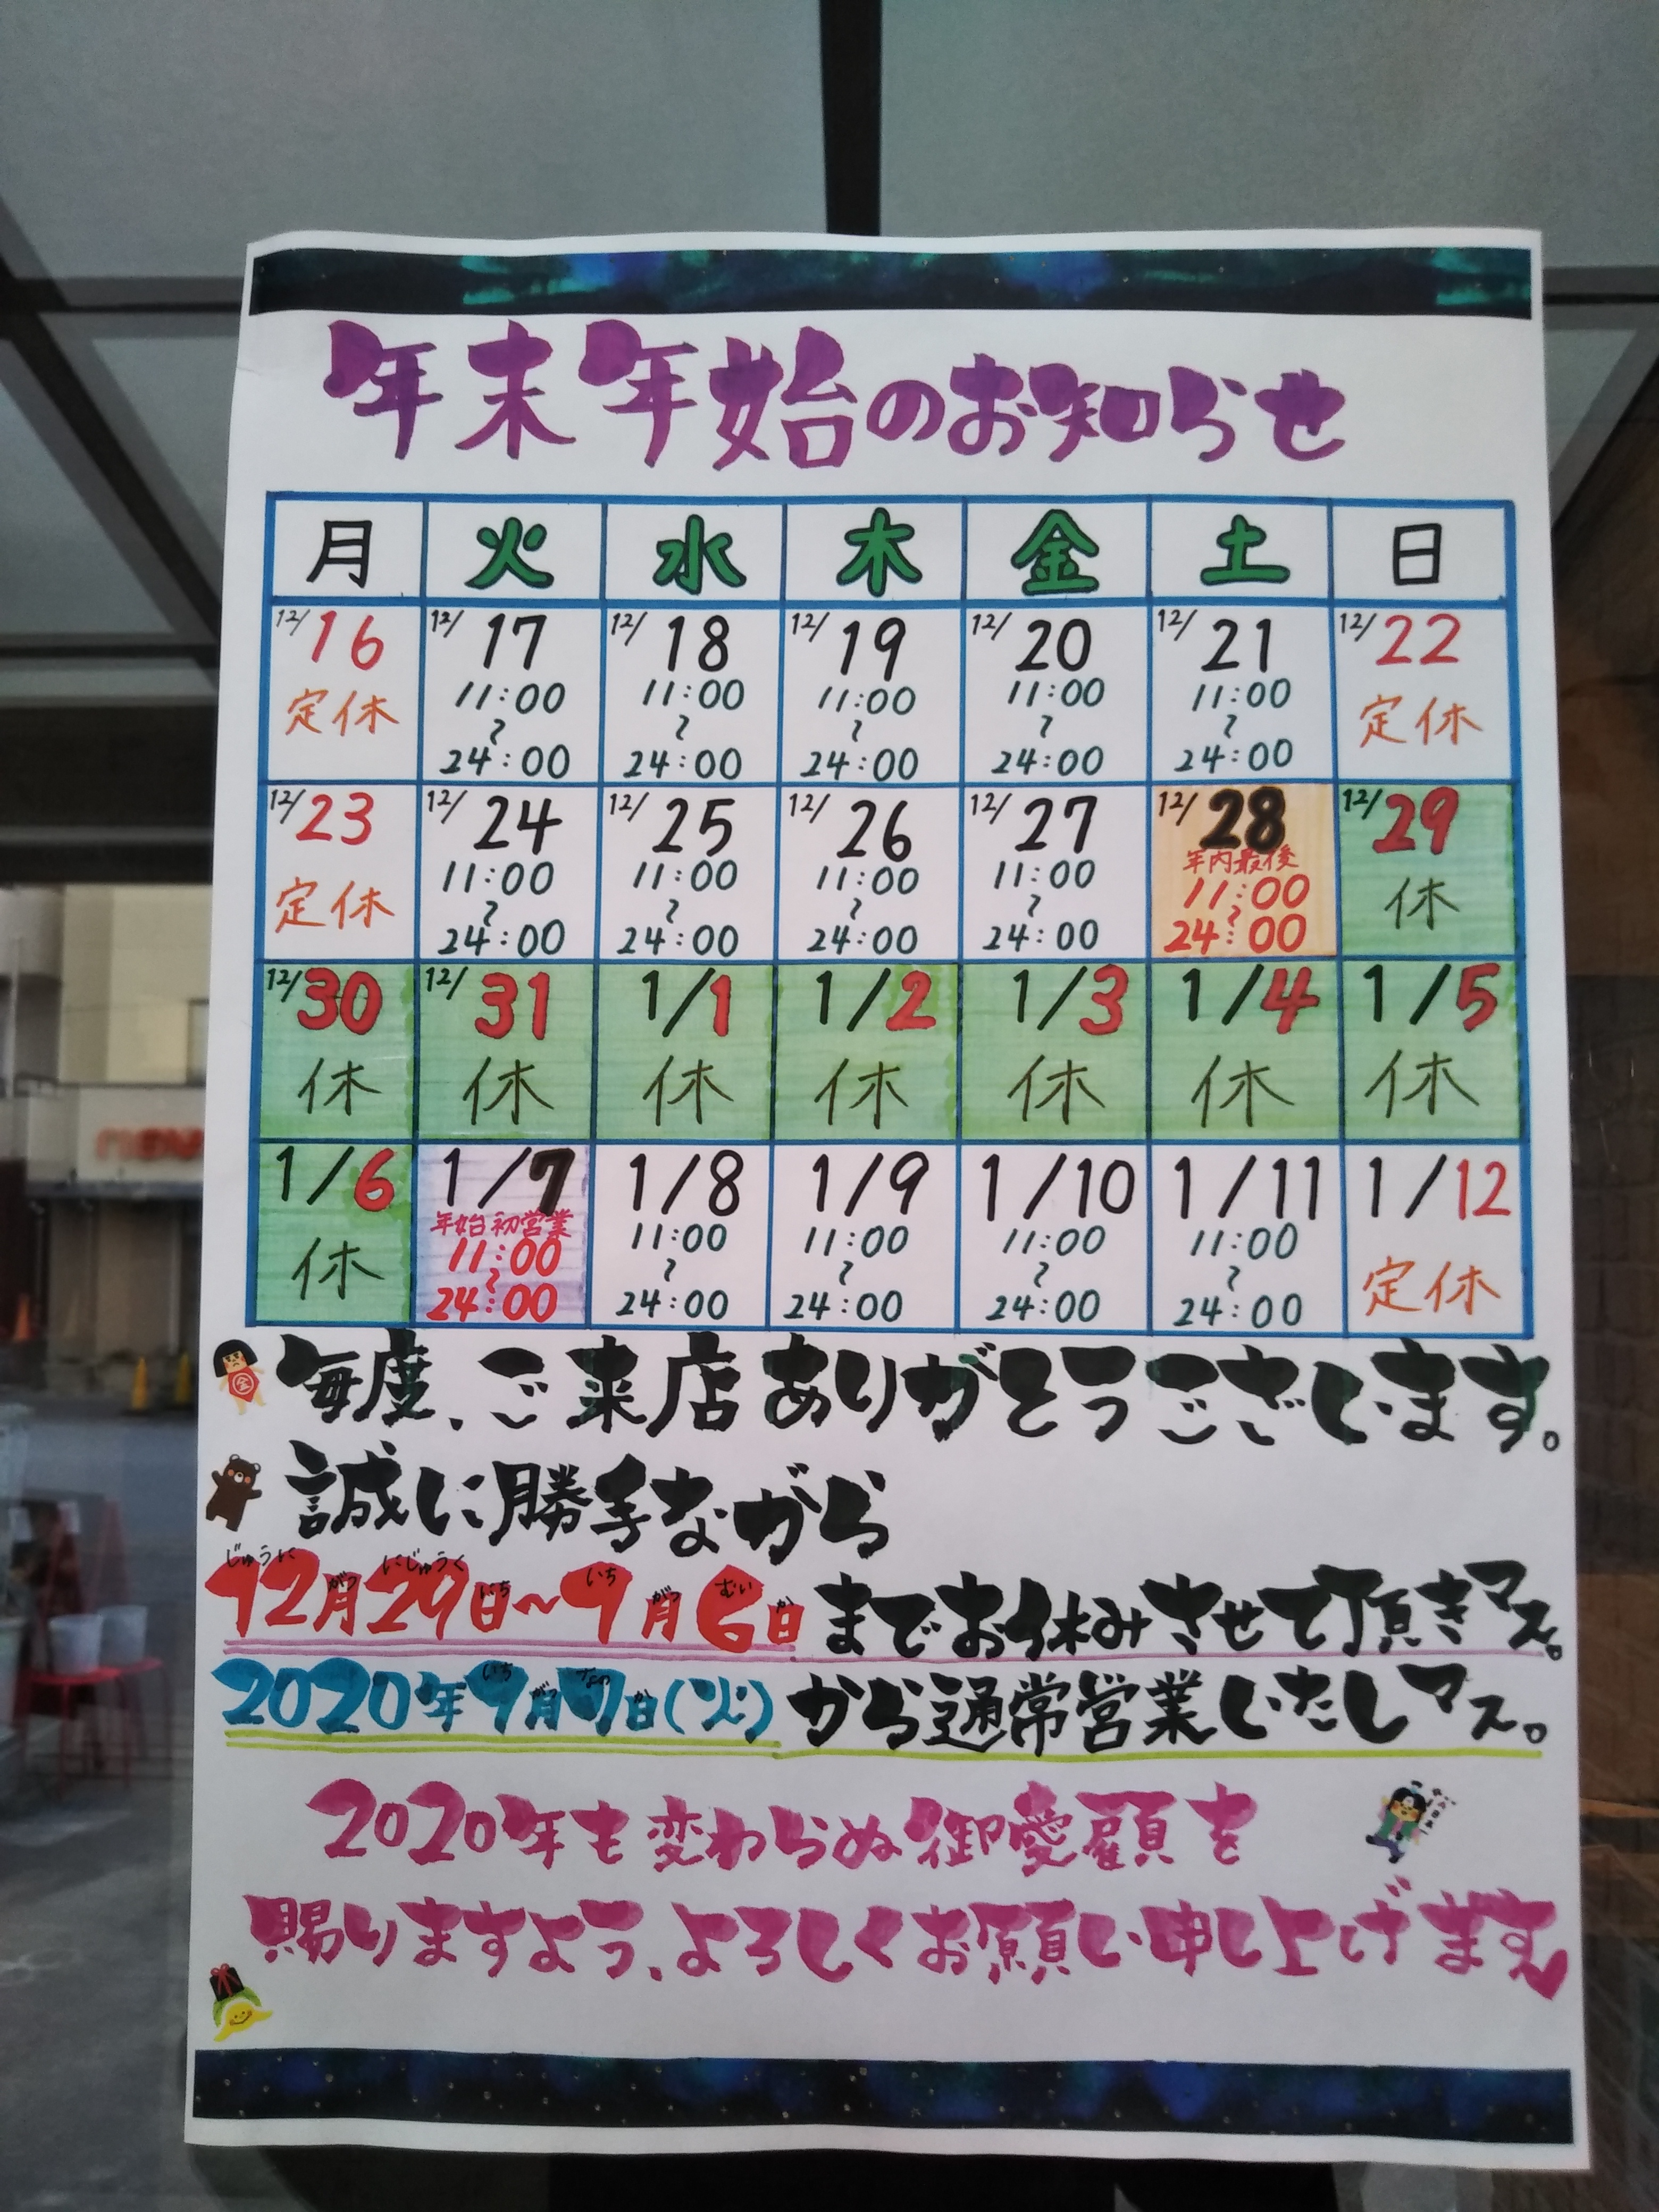 年末年始のお知らせ
月 火 水 木 金 土 日
12/16 12/17 12/18 12/19 12/20 12/21 12/22
定休 11:00〜24:00 11:00〜24:00 11:00〜24:00 11:00〜24:00 11:00〜24:00 定休
12/23 12/24 12/25 12/26 12/27 12/28 12/29
定休 11:00〜24:00 11:00〜24:00 11:00〜24:00 11:00〜24:00 年内最後 11:00〜24:00 休
12/30 12/31 1/1 1/2 1/3 1/4 1/5
休 休 休 休 休 休 休
1/6 1/7 1/8 1/9 1/10 1/11 1/12
休 年始初営業 11:00〜24:00 11:00〜24:00 11:00〜24:00 11:00〜24:00 11:00〜24:00 定休
毎度、ご来店ありがとうございます。
誠に勝手ながら
じゅうに がつ にじゅうく にち いち がつ むい か
12月29日〜1月6日までお休みさせて頂きマス。
いち がつ なの か
2020年1月7日(火)から通常営業いたしマス。
2020年も変わらぬ御愛顧を
賜りますよう、よろしくお願い申し上げます
金